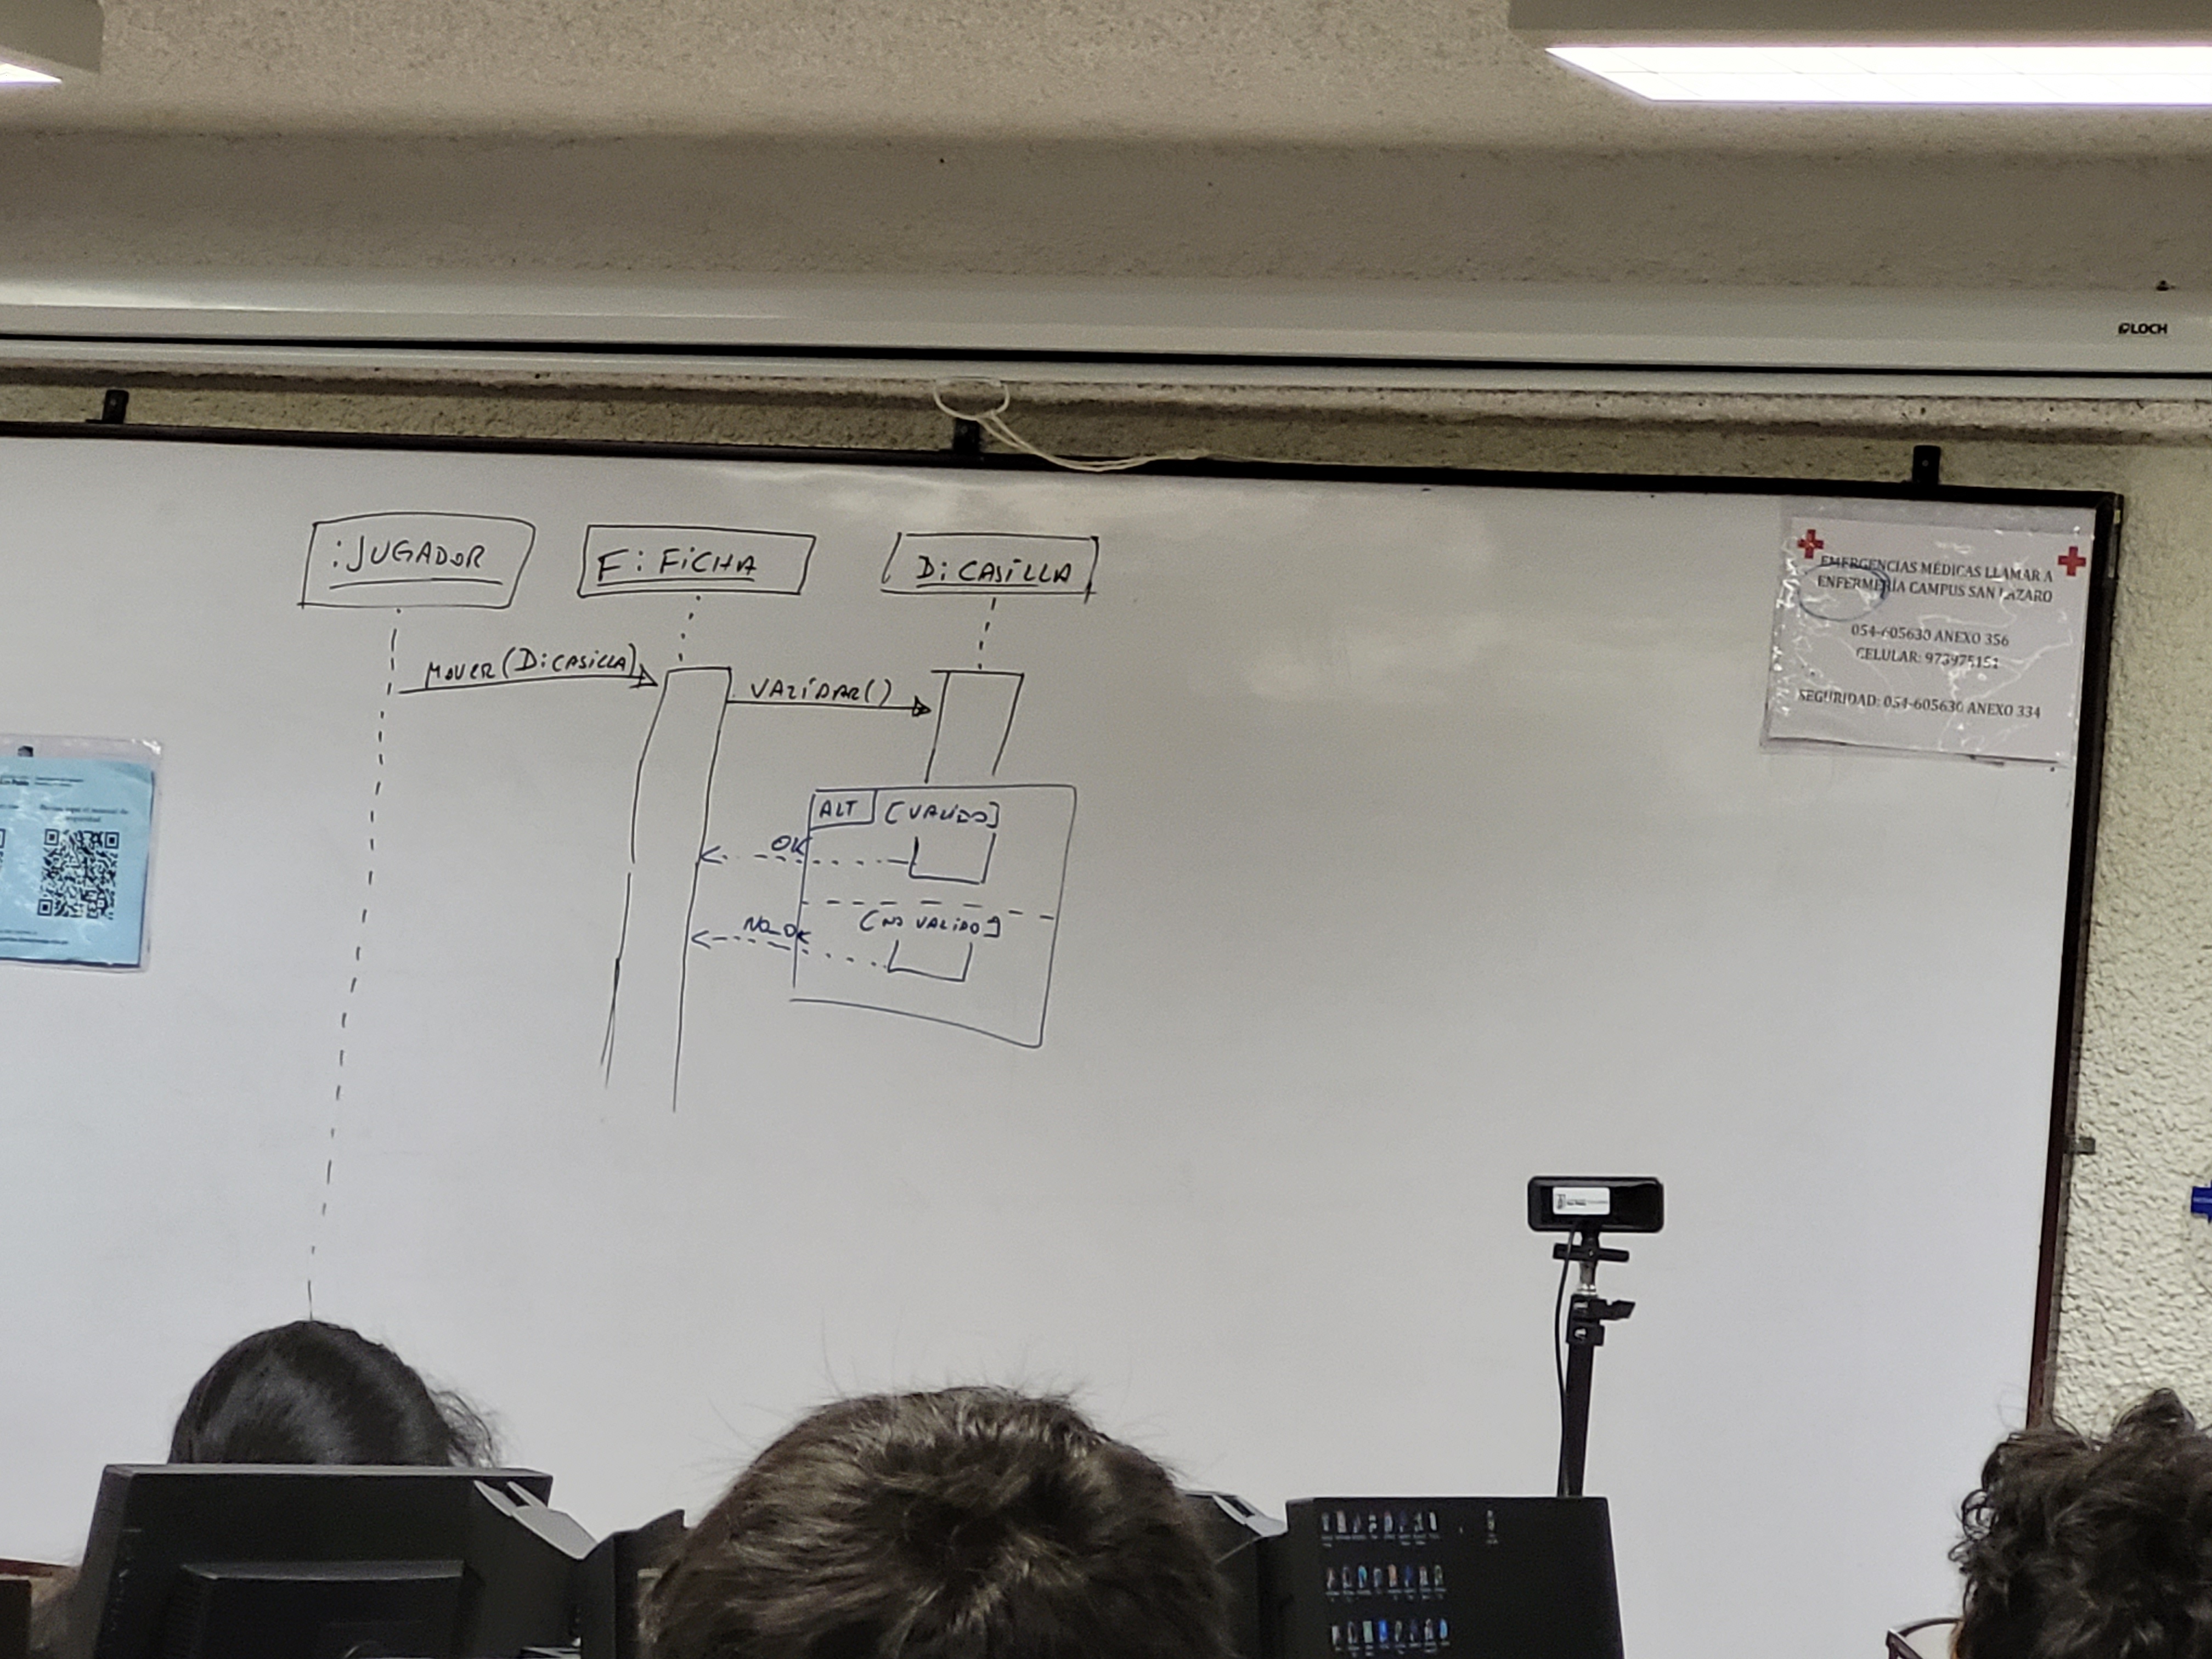 LOCH
:JUGADOR
F: FICHA
D: CASILLA
MOVER(D:CASILLA)
VALIDAR()
ALT [VALIDO]
OK
[NO VALIDO]
NO_OK
EMERGENCIAS MÉDICAS LLAMAR A
ENFERMERÍA CAMPUS SAN LAZARO
054-605630 ANEXO 356
CELULAR: 973975151
SEGURIDAD: 054-605630 ANEXO 334